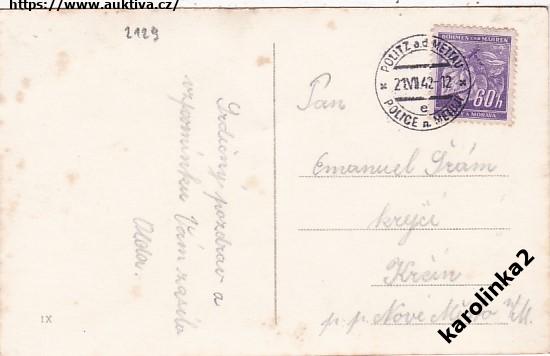 https://www.auktiva.cz/
2129
Srdečný pozdrav a
vzpomínku Vám zasílá
Olda.
IX
POLITZ a.d. METTAU
21.VII.42-12
e
POLICE n. METUJÍ
BÖHMEN UND MÄHREN
60h
A MORAVA
Pan
Emanuel Šrám
krejčí
Krčín
p. p. Nové Město n/M.
karolinka2